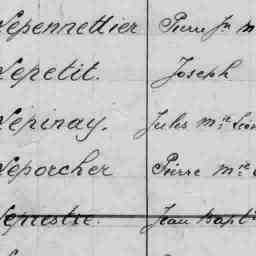 Lepennettier Pierre Jn M
Lepetit. Joseph
Lepinay. Jules Mie Léon
Leporcher Pierre Mie
Lepestre. Jean Bapt